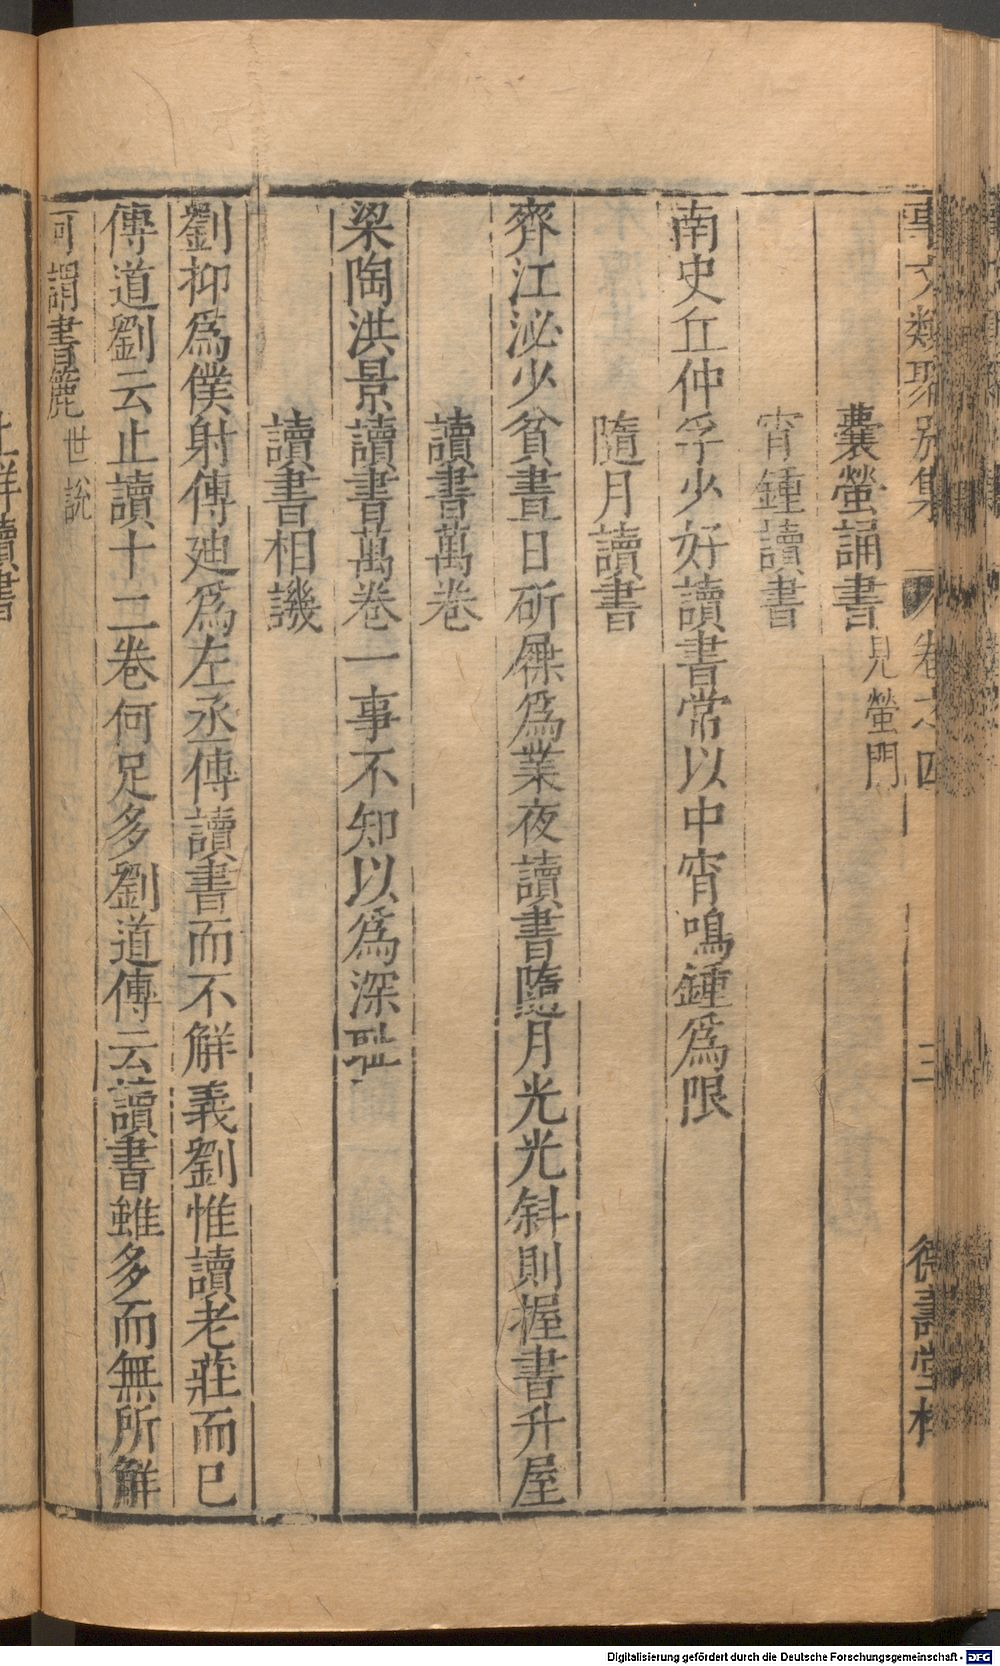 事文類聚別集 卷之四 三 德壽堂梓
囊螢誦書見螢門
宵鍾讀書
南史丘仲孚少好讀書常以中宵鳴鍾爲限
隨月讀書
齊江泌少貧晝日斫屧爲業夜讀書隨月光光斜則握書升屋
讀書萬卷
梁陶洪景讀書萬卷一事不知以爲深耻
讀書相譏
劉抑爲僕射傅廸爲左丞傅讀書而不解義劉惟讀老莊而已
傅道劉云止讀十二卷何足多劉道傅云讀書雖多而無所解
可謂書簏世說
讀書
Digitalisierung gefördert durch die Deutsche Forschungsgemeinschaft - DFG